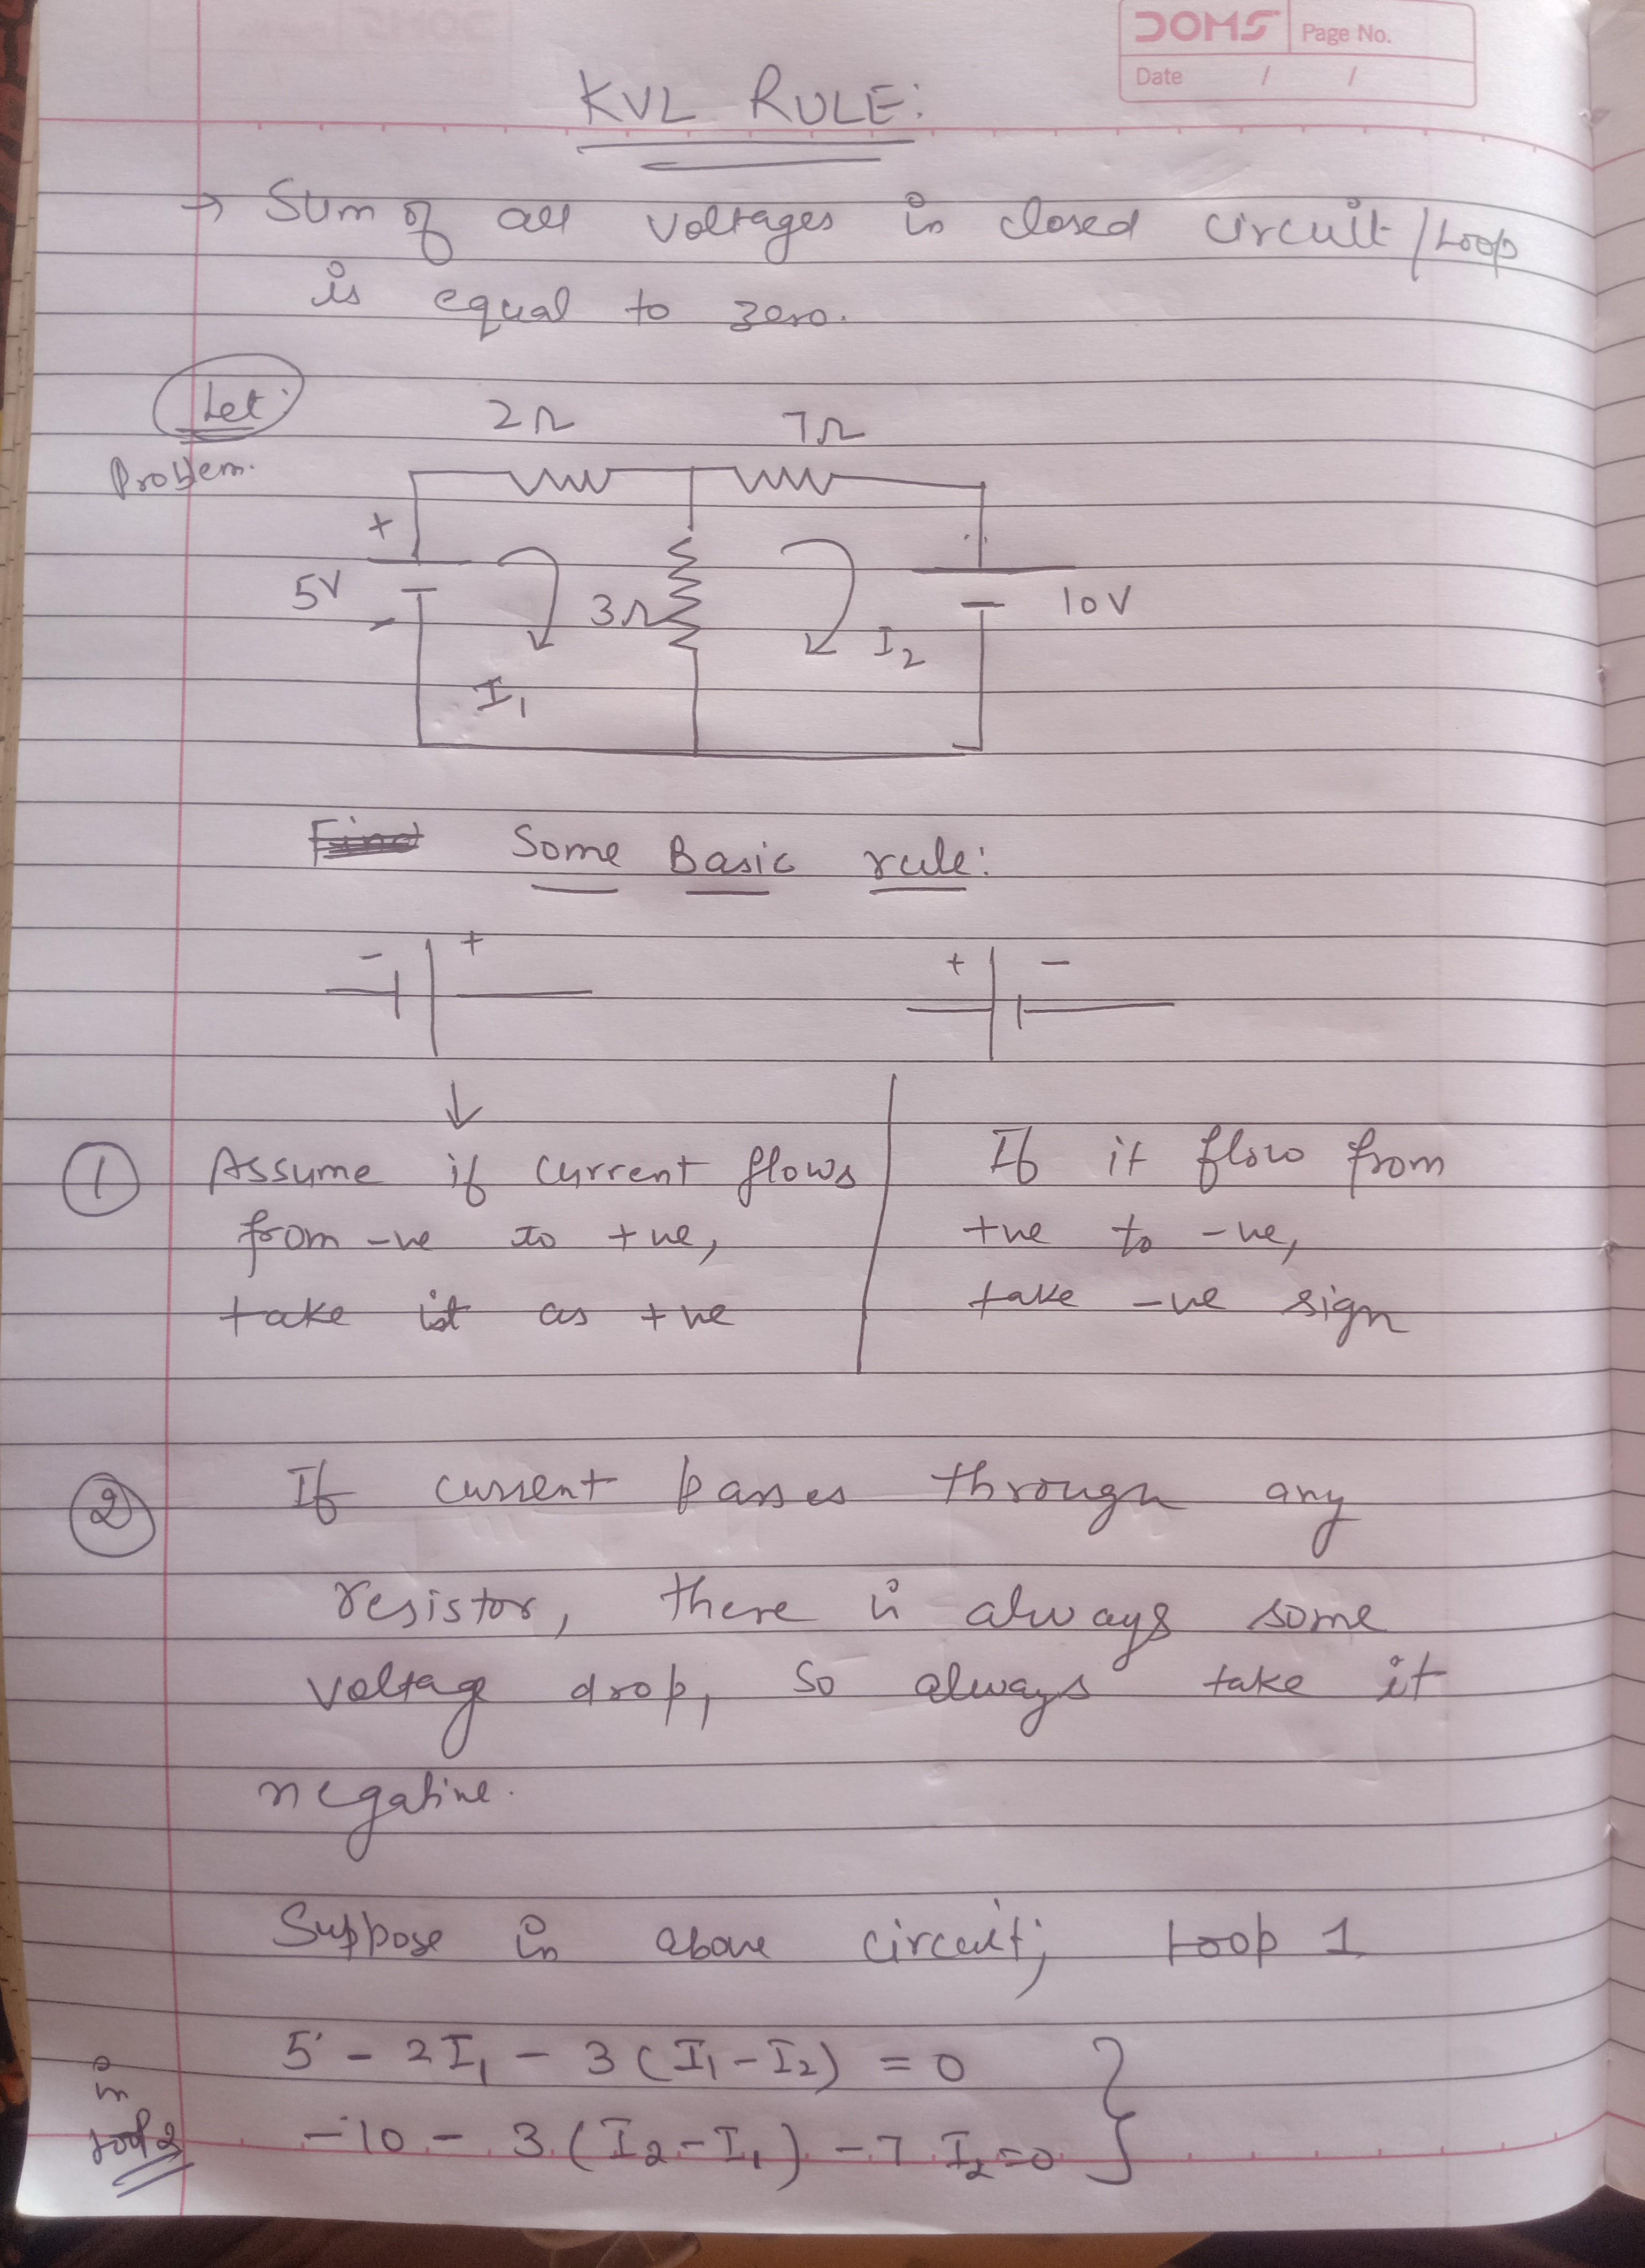 DOMS Page No.
Date / /
KVL RULE:
→ Sum of all voltages in closed circuit/Loop
is equal to zero.
Let
Problem.
2Ω 7Ω
+
5V 3Ω 10V
-
I₁ I₂
Some Basic rule:
- + + -
↓
① Assume if current flows
from -ve to +ve,
take it as +ve
If it flow from
+ve to -ve,
take -ve sign
② If current passes through any
resistor, there is always some
voltage drop, so always take it
negative.
Suppose in above circuit; Loop 1
5 - 2I₁ - 3(I₁-I₂) = 0
in loop 2 -10 - 3(I₂-I₁) -7 I₂=0